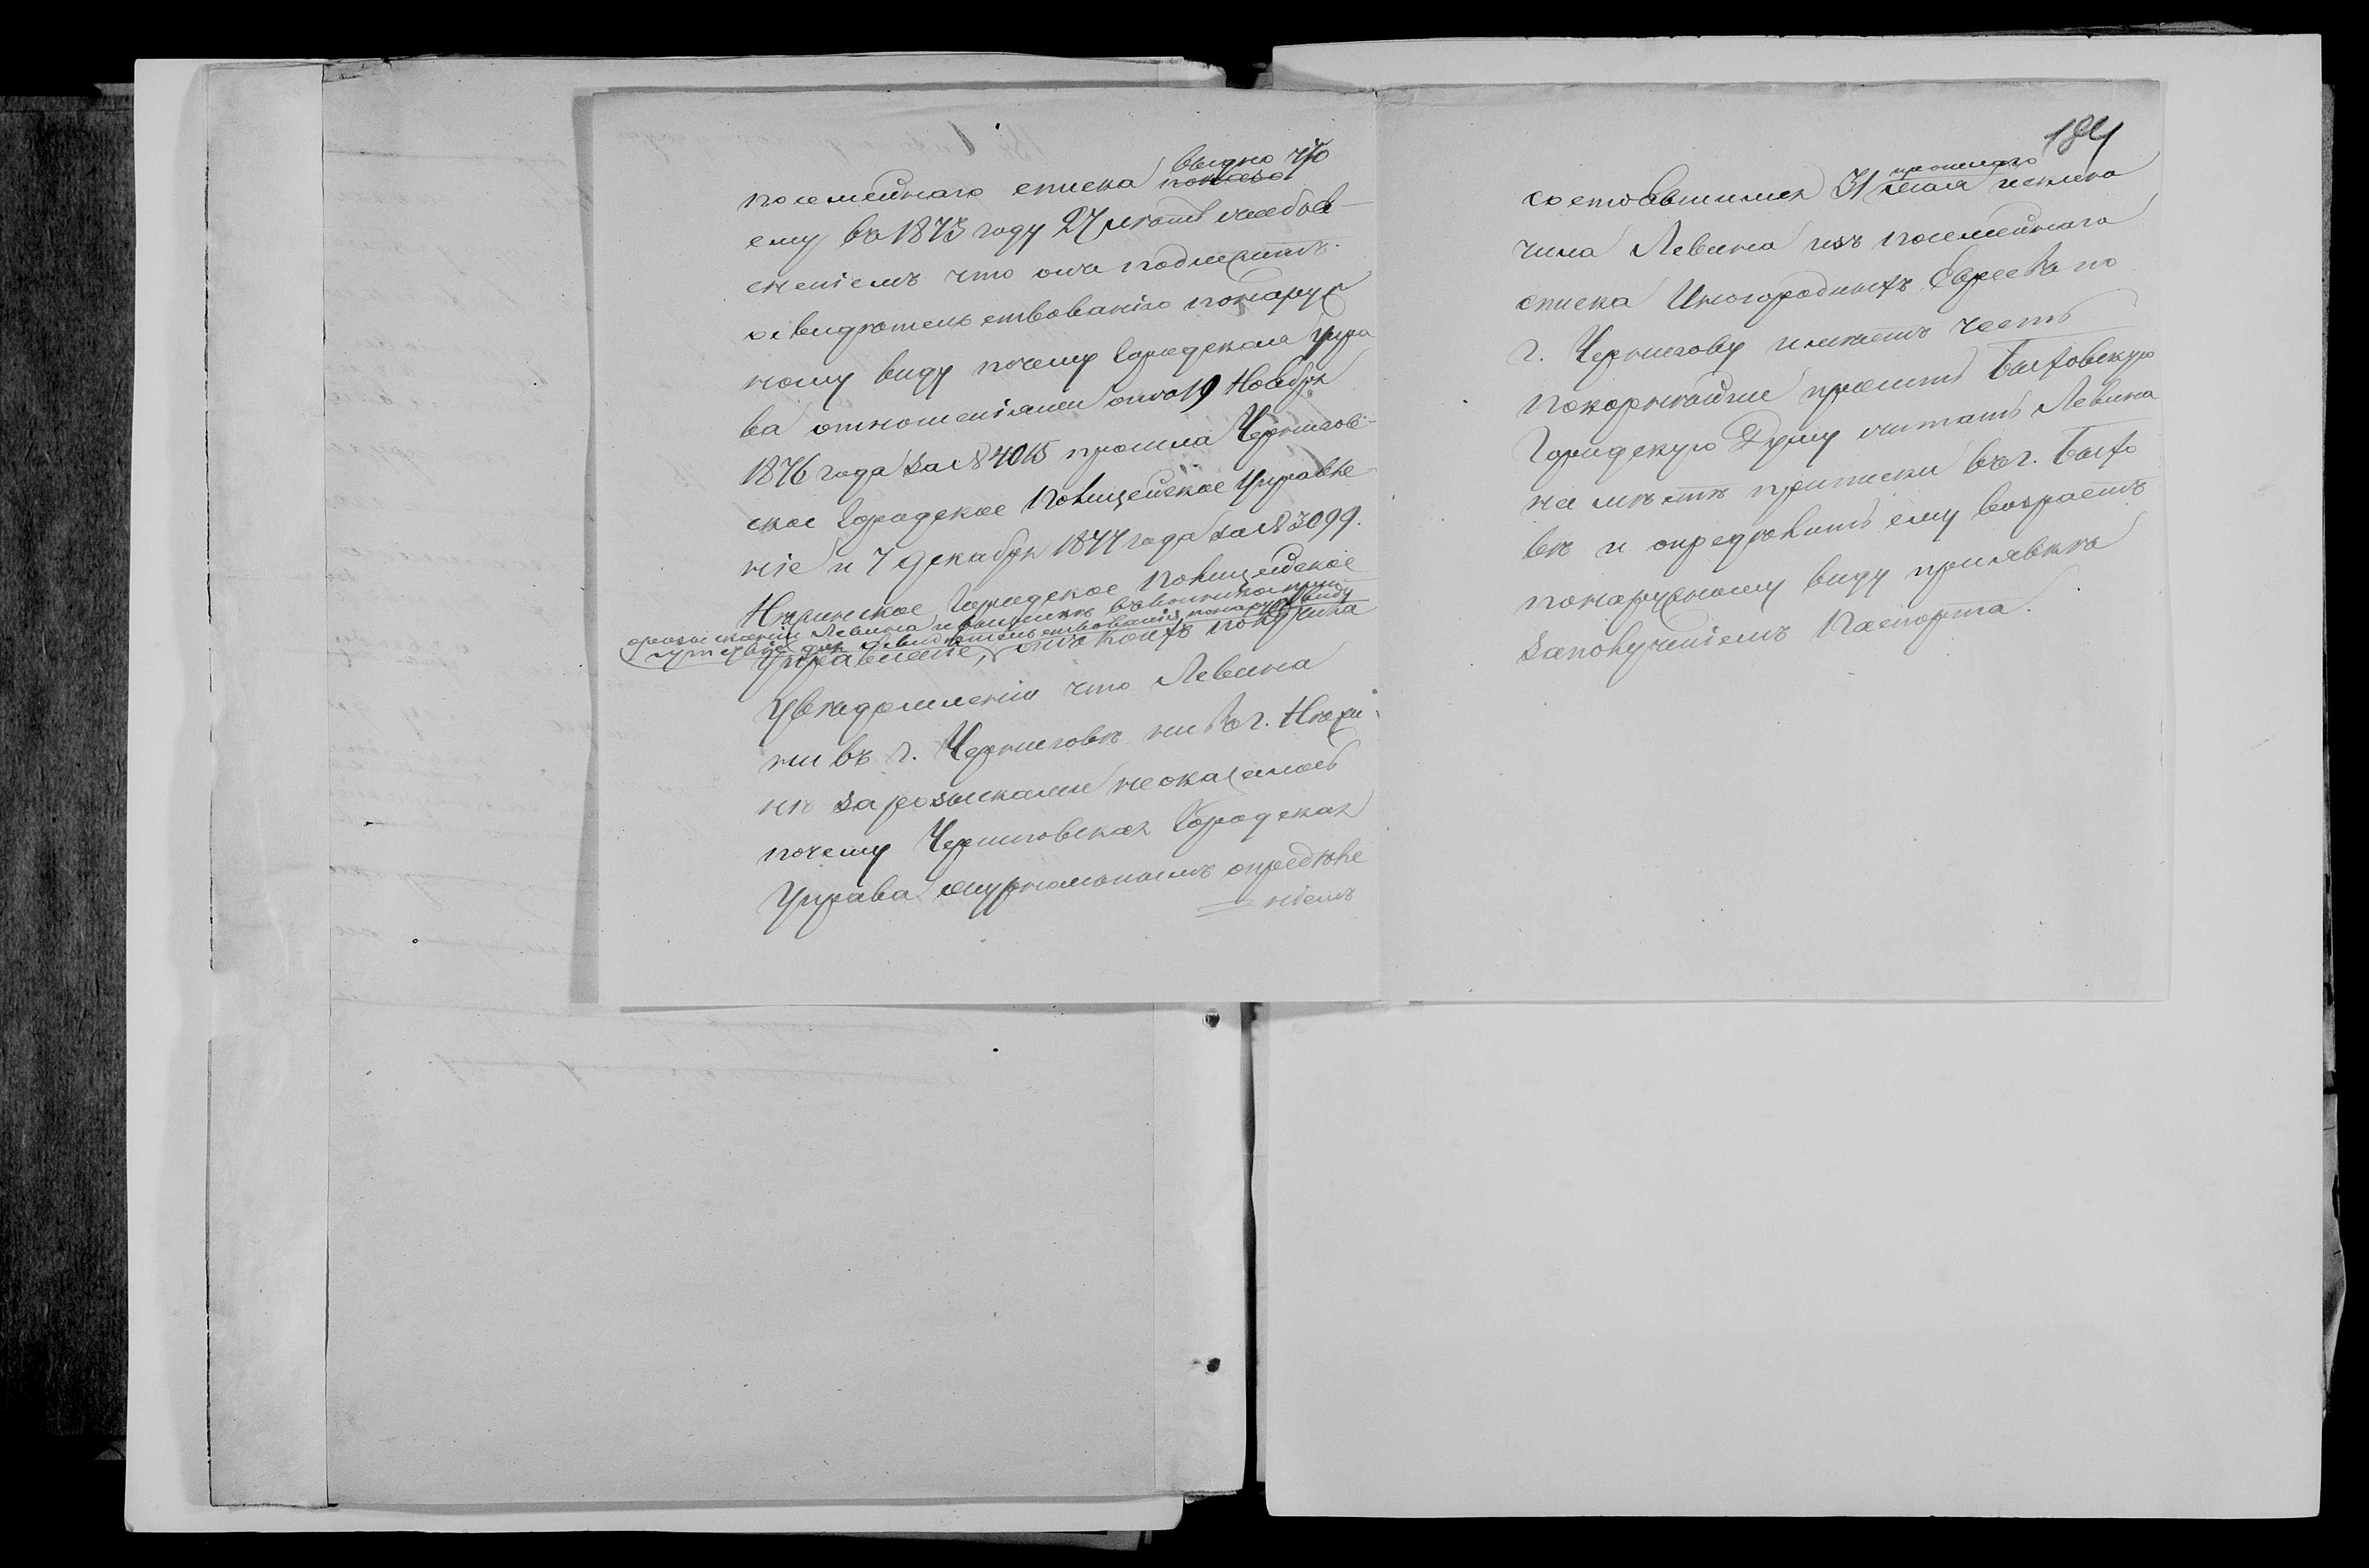 184
посемейнаго списка видно что
показа
ему въ 1873 году 27 лѣтъ съ обов-
еніемъ что онъ подлежитъ
освидѣтельствованію по наруж
ному виду почему Городская Упра
ва отношеніями отъ 19 Ноября
1876 года за № 4015 просила Чернигов-
ское Городское Полицейское Управле
ніе и 7 Декабря 1877 года за № 3099.
Нѣжинское Городское Полицейское
о розысканіи Левина и высылкѣ въ
для освидѣтельствованія по наруж виду
Управленіе, отъ коихъ получила
увѣдомленія что Левина
ни въ г. Черниговѣ ни въ г. Нѣжи-
нѣ за розысками не оказалось
почему Черниговская Городская
Управа журнальнымъ опредѣле
ніемъ
состоявшимся 31 прошлаго
мая исклю
чила Левина изъ посемейнаго
списка Иногородныхъ Евреевъ по
г. Чернигову и имѣетъ честь
покорнѣйше просить Быховскую
Городскую Думу считать Левина
на мѣстѣ приписки въ г. Быхо
вѣ и опредѣлить ему возрастъ
по наружному виду при явкѣ
за полученіемъ Паспорта.